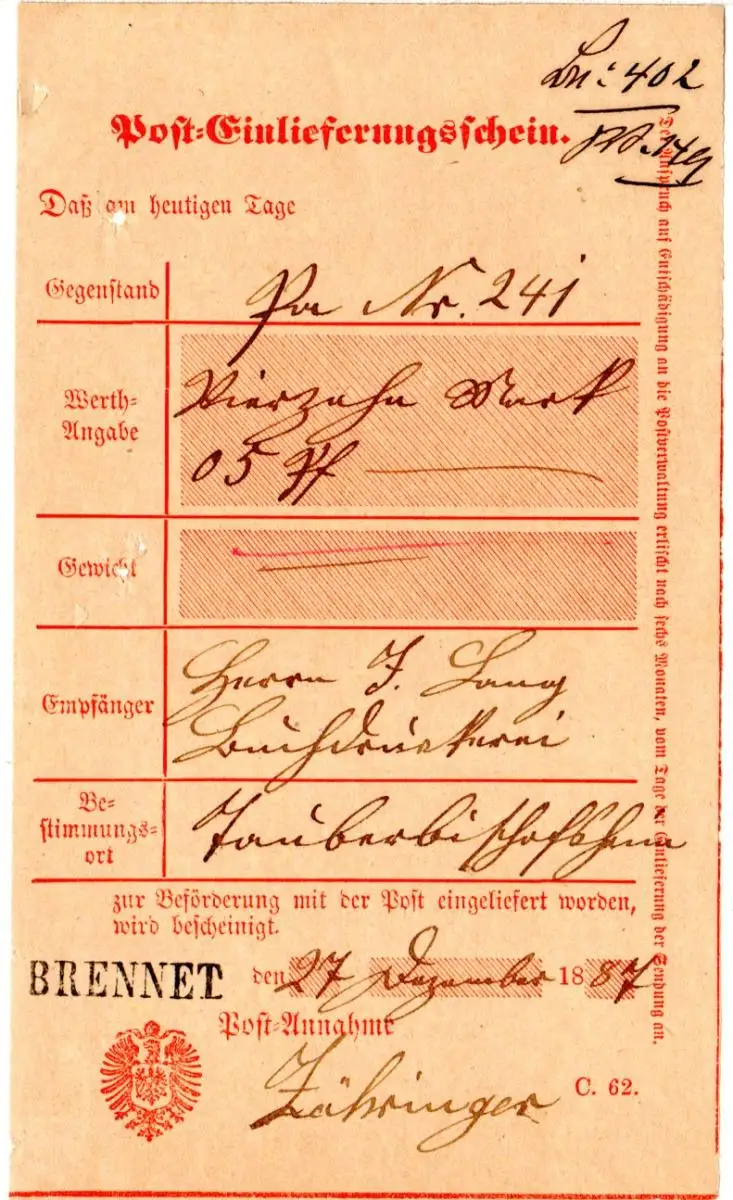 Bu: 402
149
Post-Einlieferungsschein.
Daß am heutigen Tage
Gegenstand
Pa Nr. 241
Werth-
Angabe
Vierzehn Mark
05 Pf
Gewicht
Empfänger
Herrn J. Lang
Buchdruckerei
Be-
stimmungs-
ort
Tauberbischofsheim
zur Beförderung mit der Post eingeliefert worden,
wird bescheinigt.
BRENNET den 27 Dezember 1887
Post-Annahme
Zähringer
C. 62.
Der Anspruch auf Entschädigung an die Postverwaltung erlischt nach sechs Monaten, vom Tage der Einlieferung der Sendung an.